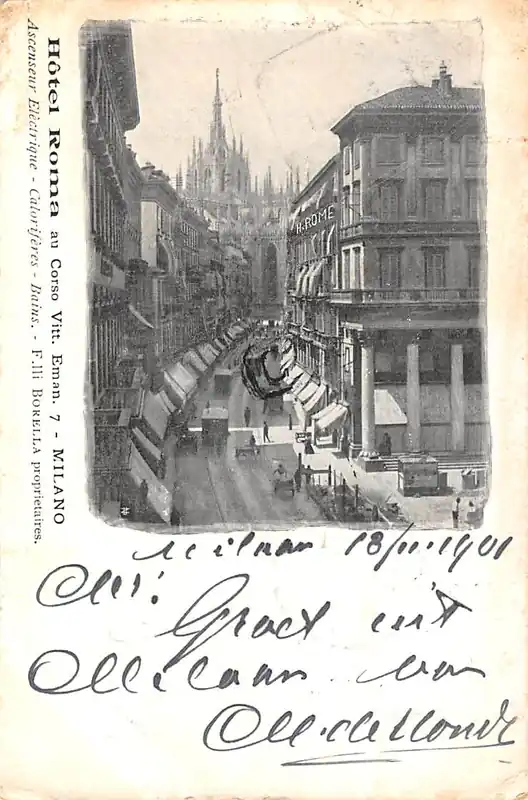 Hôtel Roma au Corso Vitt. Eman. 7 - MILANO
Ascenseur Electrique - Calorifères - Bains. - F.lli BORELLA proprietaires.
H. ROME
Milaan 18/11.1901
Groet uit
Milaan van